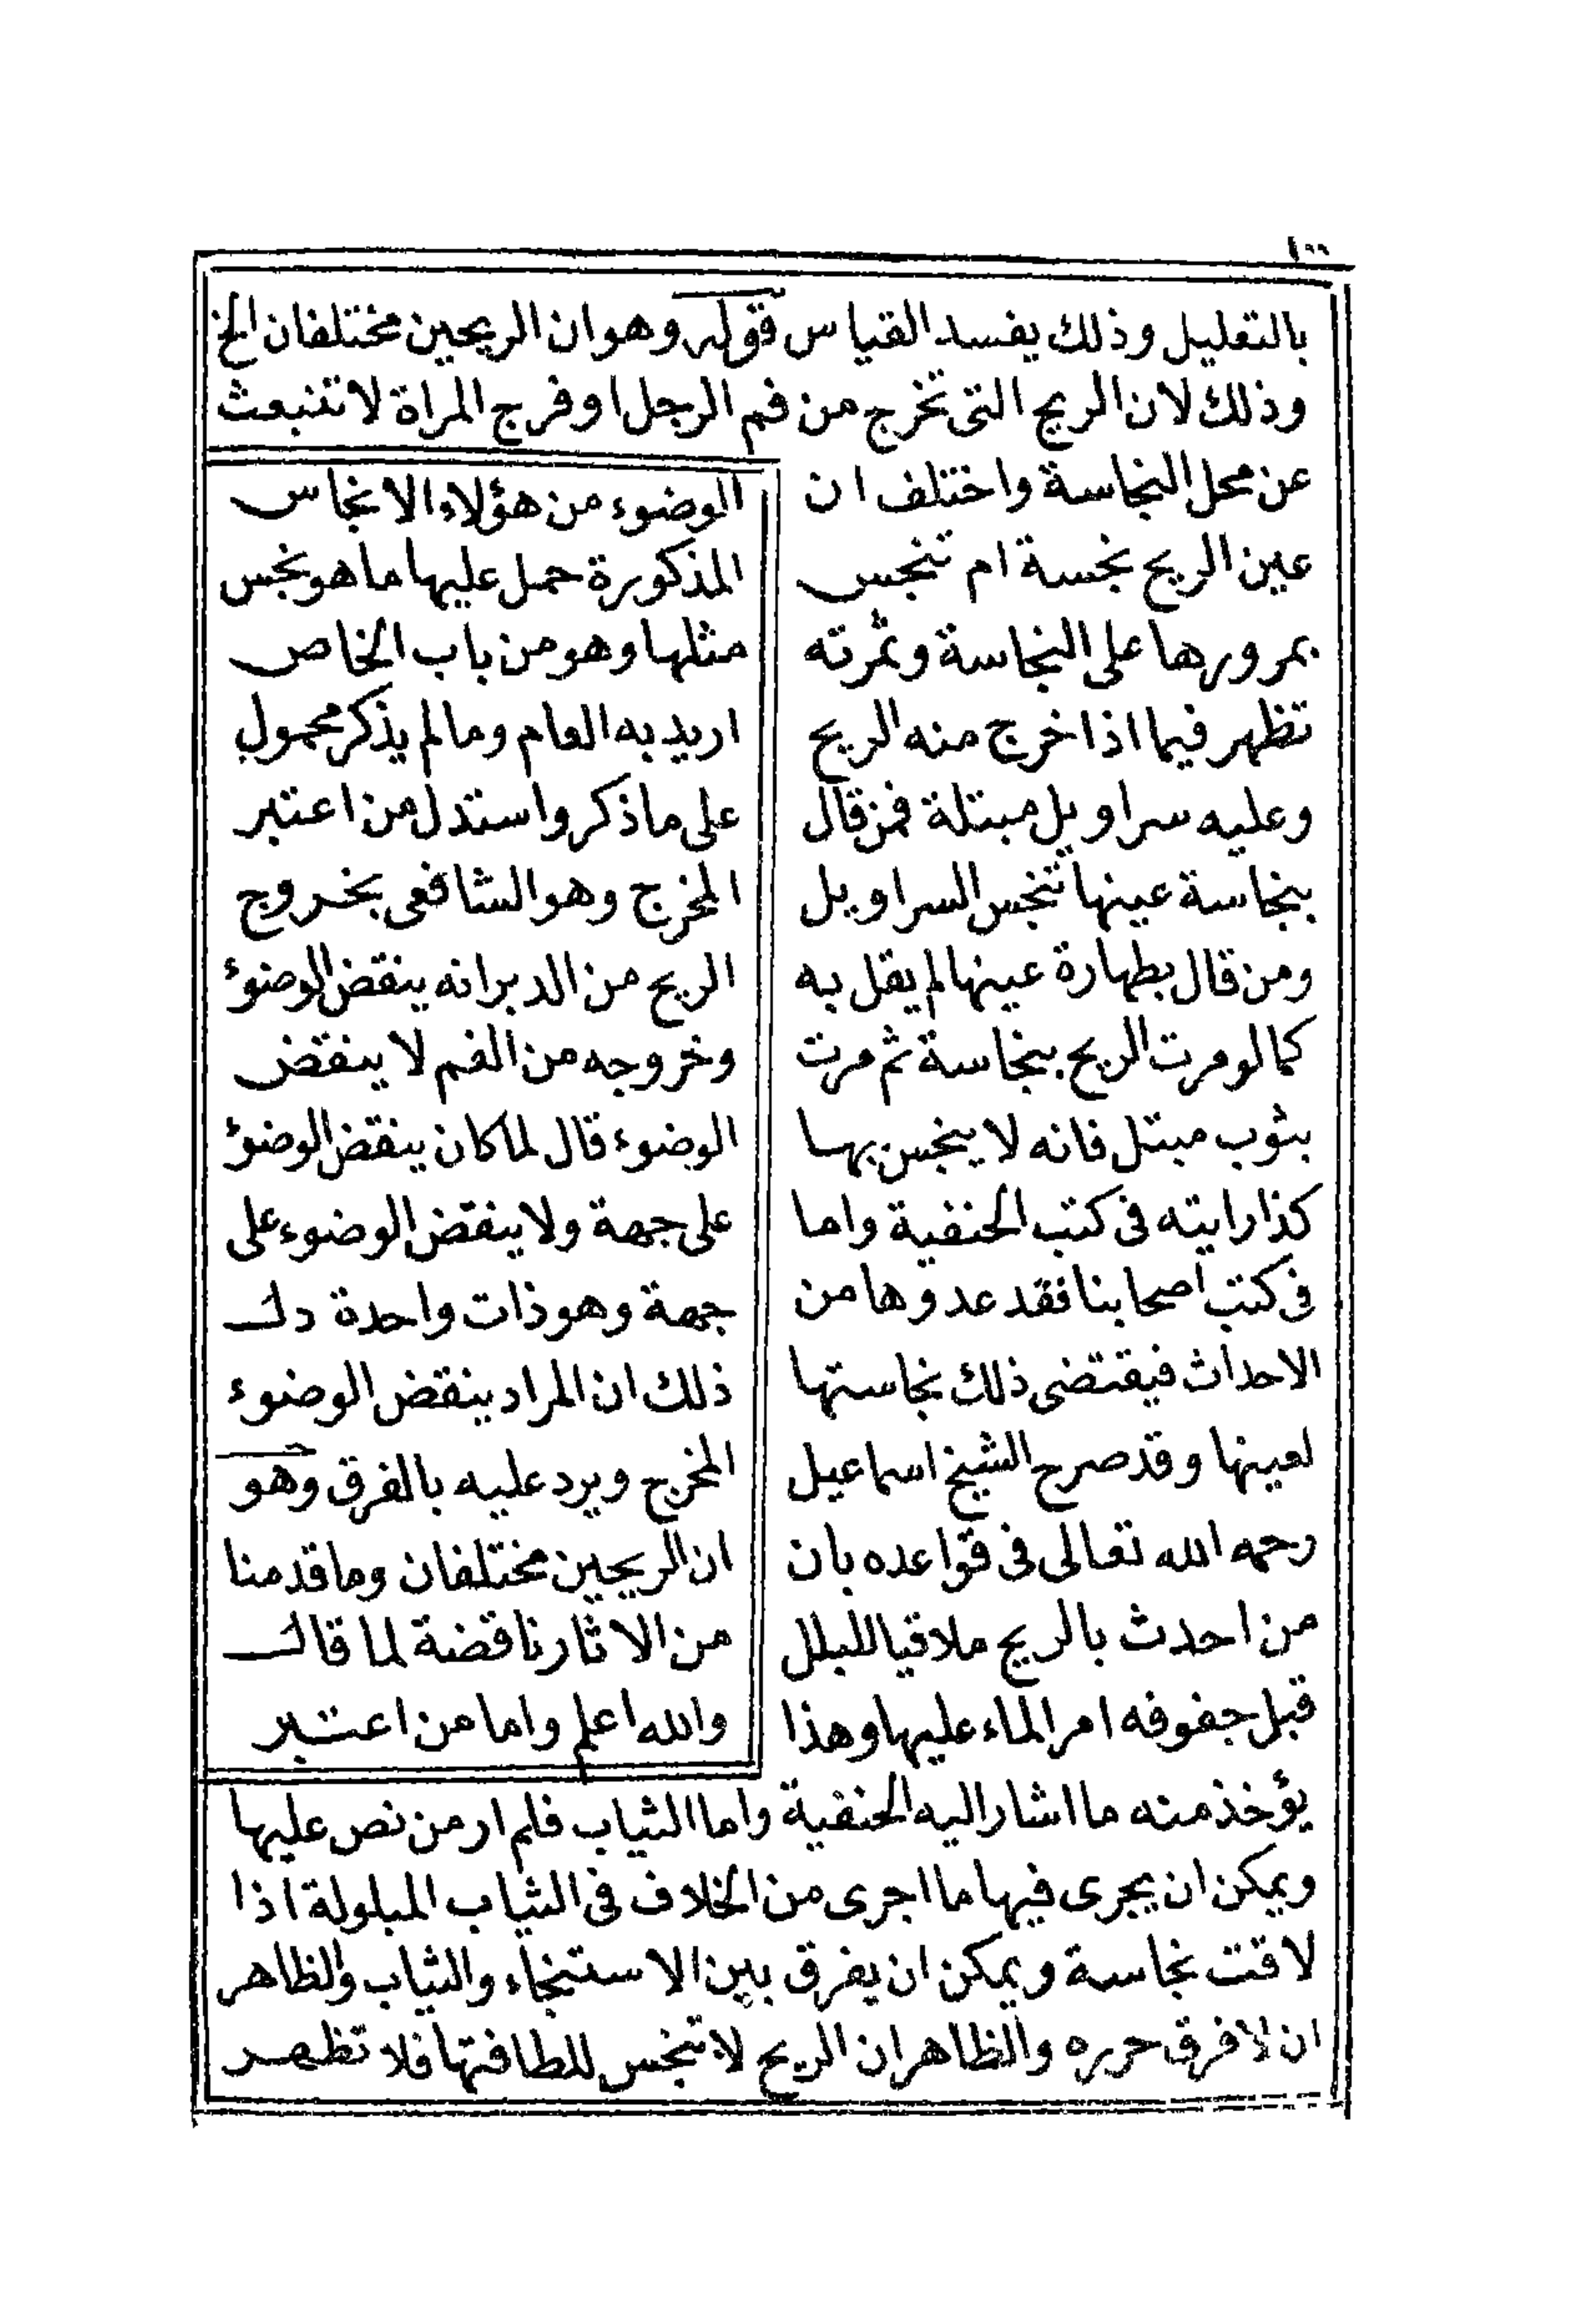 ١٠٠
بالتعليل وذلك يفسد القياس قوله وهو ان الريحين مختلفان الخ
وذلك لان الريح التى تخرج من فم الرجل او فرج المراة لا تنبعث
عن محل النجاسة واختلف ان
عين الريح نجسة ام تنجس
بمرورها على النجاسة وثمرته
تظهر فيما اذا خرج منه الريح
وعليه سراويل مبتلة فمن قال
بنجاسة عينها تنجس السراويل
ومن قال بطهارة عينها لم يقل به
كما لو مرت الريح بنجاسة ثم مرت
بثوب مبتل فانه لا ينجس بها
كذا رايته فى كتب الحنفية واما
فى كتب اصحابنا فقد عدوها من
الاحداث فيقتضى ذلك نجاستها
لعينها وقد صرح الشيخ اسماعيل
رحمه الله تعالى فى قواعده بان
من احدث بالريح ملاقيا للبلل
قبل جفوفه امر الماء عليها وهذا
يؤخذ منه ما اشار اليه الحنفية واما الثياب فلم ار من نص عليها
ويمكن ان يجرى فيها ما اجرى من الخلاف فى الثياب المبلولة اذا
لاقت نجاسة ويمكن ان يفرق بين الاستنجاء والثياب والظاهر
ان لا فرق حرره والظاهر ان الريح لا تنجس للطافتها فلا تظهر
الوضوء من هؤلاء الانجاس
المذكورة حمل عليها ما هو نجس
مثلها وهو من باب الخاص
اريد به العام وما لم يذكر محمول
على ما ذكر واستدل من اعتبر
المخرج وهو الشافعى بخروج
الريح من الدبر انه ينقض الوضوء
وخروجه من الفم لا ينقض
الوضوء قال لما كان ينقض الوضوء
على جهة ولا ينقض الوضوء على
جهة وهو ذات واحدة دل
ذلك ان المراد ينقض الوضوء
المخرج ويرد عليه بالفرق وهو
ان الريحين مختلفان وما قدمنا
من الاثار ناقضة لما قال
والله اعلم واما من اعتبر